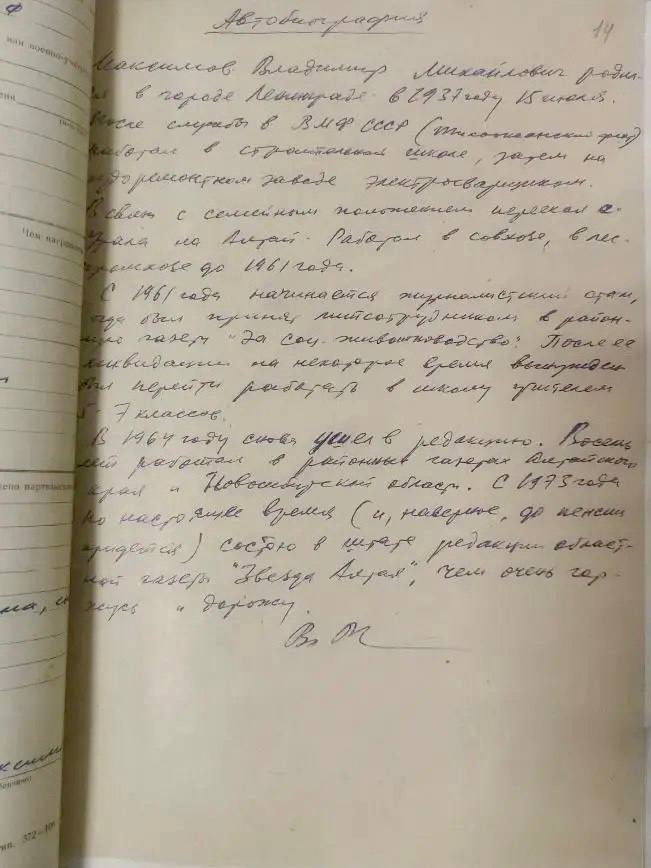 Автобиография
14
Максимов Владимир Михайлович родил-
ся в городе Ленинграде в 1937 году 15 июля.
После службы в ВМФ СССР (Тихоокеанский флот)
работал в строительной школе, затем на
судоремонтном заводе электросварщиком.
В связи с семейным положением переехал с
Урала на Алтай. Работал в совхозе, в лес-
промхозе до 1961 года.
С 1961 года начинается журналистский стаж,
когда был принят литсотрудником в район-
ную газету "За соц. животноводство". После ее
ликвидации на некоторое время вынужден
был перейти работать в школу учителем
5-7 классов.
В 1964 году снова ушел в редакцию. Восемь
лет работал в районных газетах Алтайского
края и Новосибирской области. С 1973 года
по настоящее время (и, наверное, до пенсии
придется) состою в штате редакции област-
ной газеты "Звезда Алтая", чем очень гор-
жусь и дорожу.
ф
или военно-учётн
Чем награжден
ена партвзыскан
ма, и
ксим
тип. 372—100